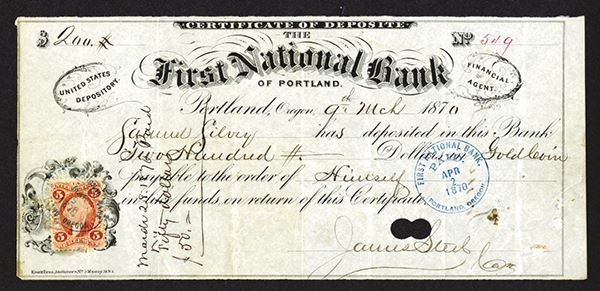 CERTIFICATE OF DEPOSITE
$ 200.#
THE
No 549
First National Bank
OF PORTLAND.
UNITED STATES
DEPOSITORY.
FINANCIAL
AGENT.
Portland, Oregon, 9th Mch 1870
Samuel Silvry has deposited in this Bank
Two Hundred #. Dollars Gold Coin
payable to the order of Himself
in funds on return of this Certificate
March 28. 1870 Paid
Fifty Dollars
FIRST NATIONAL BANK.
PAID
APR
2
1870
PORTLAND, OREGON.
5 5
James Steel